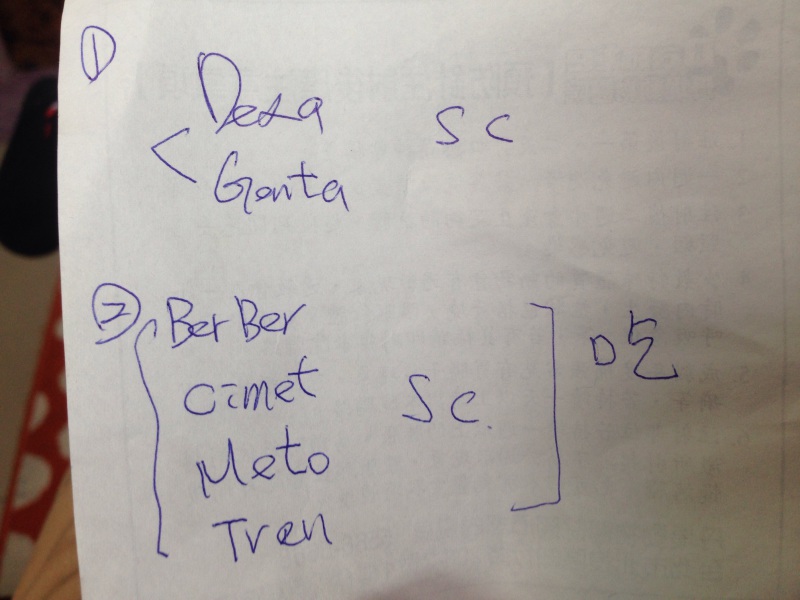 ①
Dexa SC
Genta
②
BerBer
Cimet SC.
Meto
Tren
吃